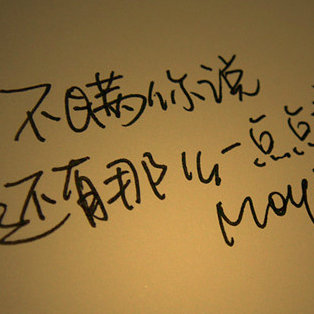 不瞒你说
还有那么一点点